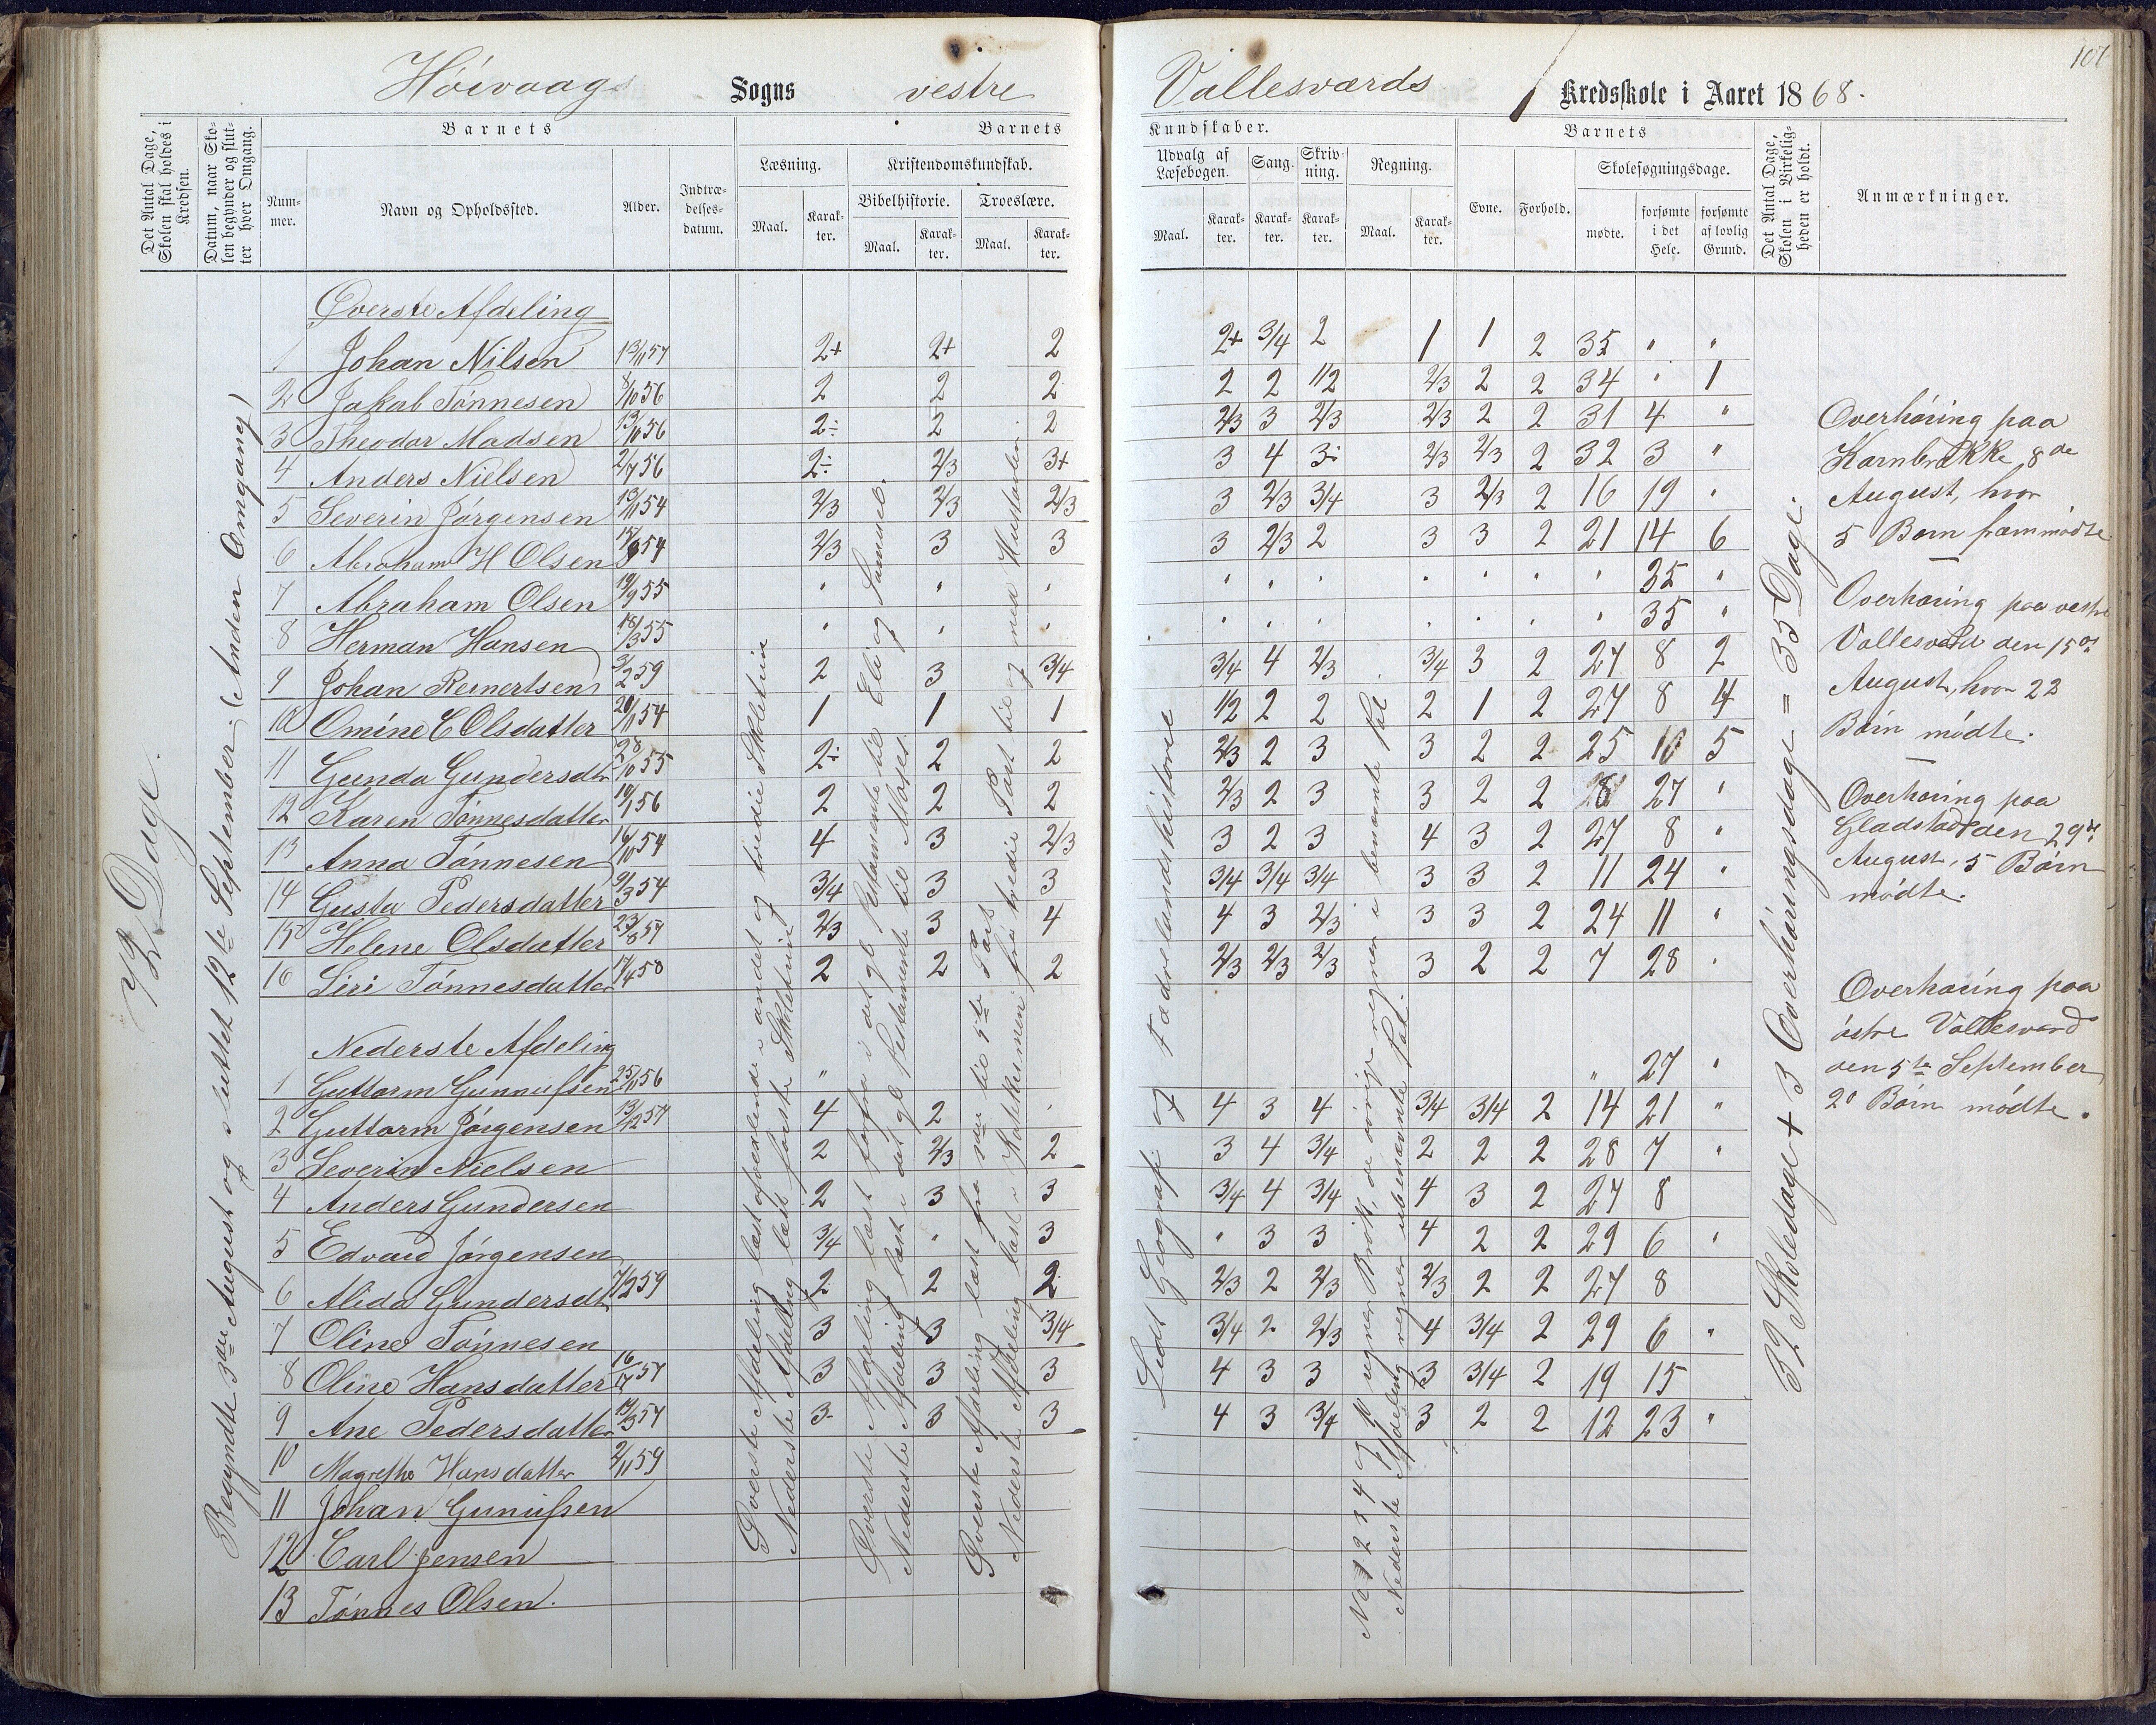 107
Höivaags Sogns vestre Vallesværds Kredsskole i Aaret 1868.
Det Antal Dage, Skolen skal holdes i Kredsen.
Datum, naar Skolen begynder og slutter hver Omgang.
Barnets
Nummer.
Navn og Opholdssted.
Alder.
Indtrædelsesdatum.
Barnets Kundskaber.
Læsning.
Maal.
Karakter.
Kristendomskundskab.
Bibelhistorie.
Maal.
Karakter.
Troeslære.
Maal.
Karakter.
Udvalg af Læsebogen.
Maal.
Karakter.
Sang.
Karakter.
Skrivning.
Karakter.
Regning.
Maal.
Karakter.
Barnets
Evne.
Forhold.
Skolesøgningsdage.
mødte.
forsømte i det Hele.
forsømte af lovlig Grund.
Det Antal Dage, Skolen i Virkeligheden er holdt.
Anmærkninger.
72 Dage.
Begyndte 3die August og sluttet 12te September. (Anden Omgang)
Øverste Afdeling
1 Johan Nilsen 13/11 57 2+ 2+ 2 2+ 3/4 2 1 1 2 35 " "
2 Jakob Tönnesen 8/10 56 2 2 2 2 2 1/2 2/3 2 2 34 " 1
3 Theodor Madsen 13/10 56 2÷ 2 2 2/3 3 2/3 2/3 2 2 31 4 "
4 Anders Nielsen 2/7 56 2÷ 2/3 3+ 3 4 3÷ 2/3 2/3 2 32 3 "
5 Severin Jörgensen 13/11 54 2/3 2/3 2/3 3 2/3 3/4 3 2/3 2 16 19 "
6 Abraham H Olsen 54 2/3 3 3 3 2/3 2 3 3 2 21 14 6
7 Abraham Olsen 19/9 55 " " " " " " " " " " 35 "
8 Herman Hansen 18/3 55 " " " " " " " " " " 35 "
9 Johan Reinertsen 3/2 59 2 3 3/4 3/4 4 2/3 3/4 3 2 27 8 2
10 Omine C Olsdatter 20/11 54 1 1 1 1/2 2 2 2 1 2 27 8 4
11 Gunda Gundersdtr 28/10 55 2÷ 2 2 2/3 2 3 3 2 2 25 10 5
12 Karen Tönnesdatter 19/1 56 2 2 2 2/3 2 3 3 2 2 8 27 "
13 Anna Tönnesen 16/10 54 4 3 2/3 3 2 3 4 3 2 27 8 "
14 Gusta Pedersdatter 9/3 54 3/4 3 3 3/4 3/4 3/4 3 3 2 11 24 "
15 Helene Olsdatter 23/8 57 2/3 3 4 4 3 2/3 3 3 2 24 11 "
16 Siri Tönnesdatter 17/4 58 2 2 2 2/3 2/3 2/3 3 2 2 7 28 "
Nederste Afdeling
1 Guttorm Gunnufsen 25/11 56 " " 27 "
2 Guttorm Jörgensen 13/12 57 4 2 " 4 3 4 3/4 3/4 2 14 21 "
3 Severin Nielsen 2 2/3 2 3 4 3/4 2 2 2 28 7 "
4 Anders Gundersen 2 3 3 3/4 4 3/4 4 3 2 27 8
5 Edvard Jörgensen 3/4 " 3 " 3 3 4 2 2 29 6 "
6 Alida Gundersdtr 7/12 59 2 2 2 2/3 2 2/3 2/3 2 2 27 8
7 Oline Tönnesen 3 3 3/4 3/4 2 2/3 4 3/4 2 29 6 "
8 Oline Hansdatter 57 3 3 3 4 3 3 3 3/4 2 19 15
9 Ane Pedersdatter 14/3 57 3 3 3 4 3 3/4 3 2 2 12 23 "
10 Magrethe Hansdatter 2/11 59
11 Johan Gunufsen
12 Carl Jensen
13 Tönnes Olsen.
Øverste Afdeling læst afvexlende i andet og tredie Skoletrin
Nederste Afdeling læst første Skoletrin
Øverste Afdeling læst forfra i det gl Testamente til Eli og Samuel.
Nederste Afdeling læst i det gl Testamente til Moses.
Øverste Afdeling læst fra til 5te Part fra tredie Part til og med Hustavlen.
Nederste Afdeling læst i Katekismen
Lidt Geografi og Fædrelandshistorie
No 1 2 3 4 og 10 regner Brök, de övrige regner i benævnte Tal
Nederste Afdeling regner ubenævnte Tal.
32 Skoledage + 3 Overhöringsdage = 35 Dage.
Overhöring paa
Kornbrække 8de
August, hvor
5 Børn fremmödte.
Overhöring paa vestre
Vallesværd den 15de
August, hvor 22
Börn mödte.
Overhöring paa
Gladstad den 29de
August, 5 Börn
mödte.
Overhöring paa
östre Vallesværd
den 5te September
20 Börn mödte.